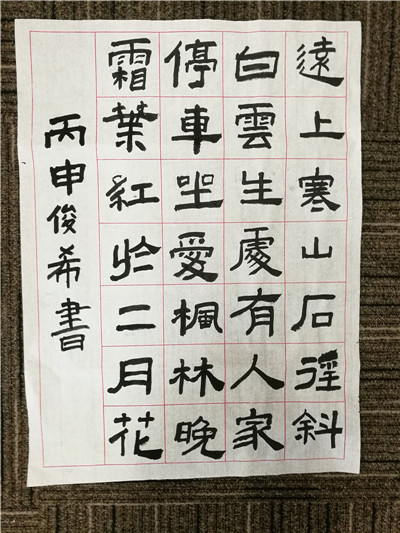 遠上寒山石徑斜
白雲生處有人家
停車坐愛楓林晚
霜葉紅於二月花
丙申俊希書